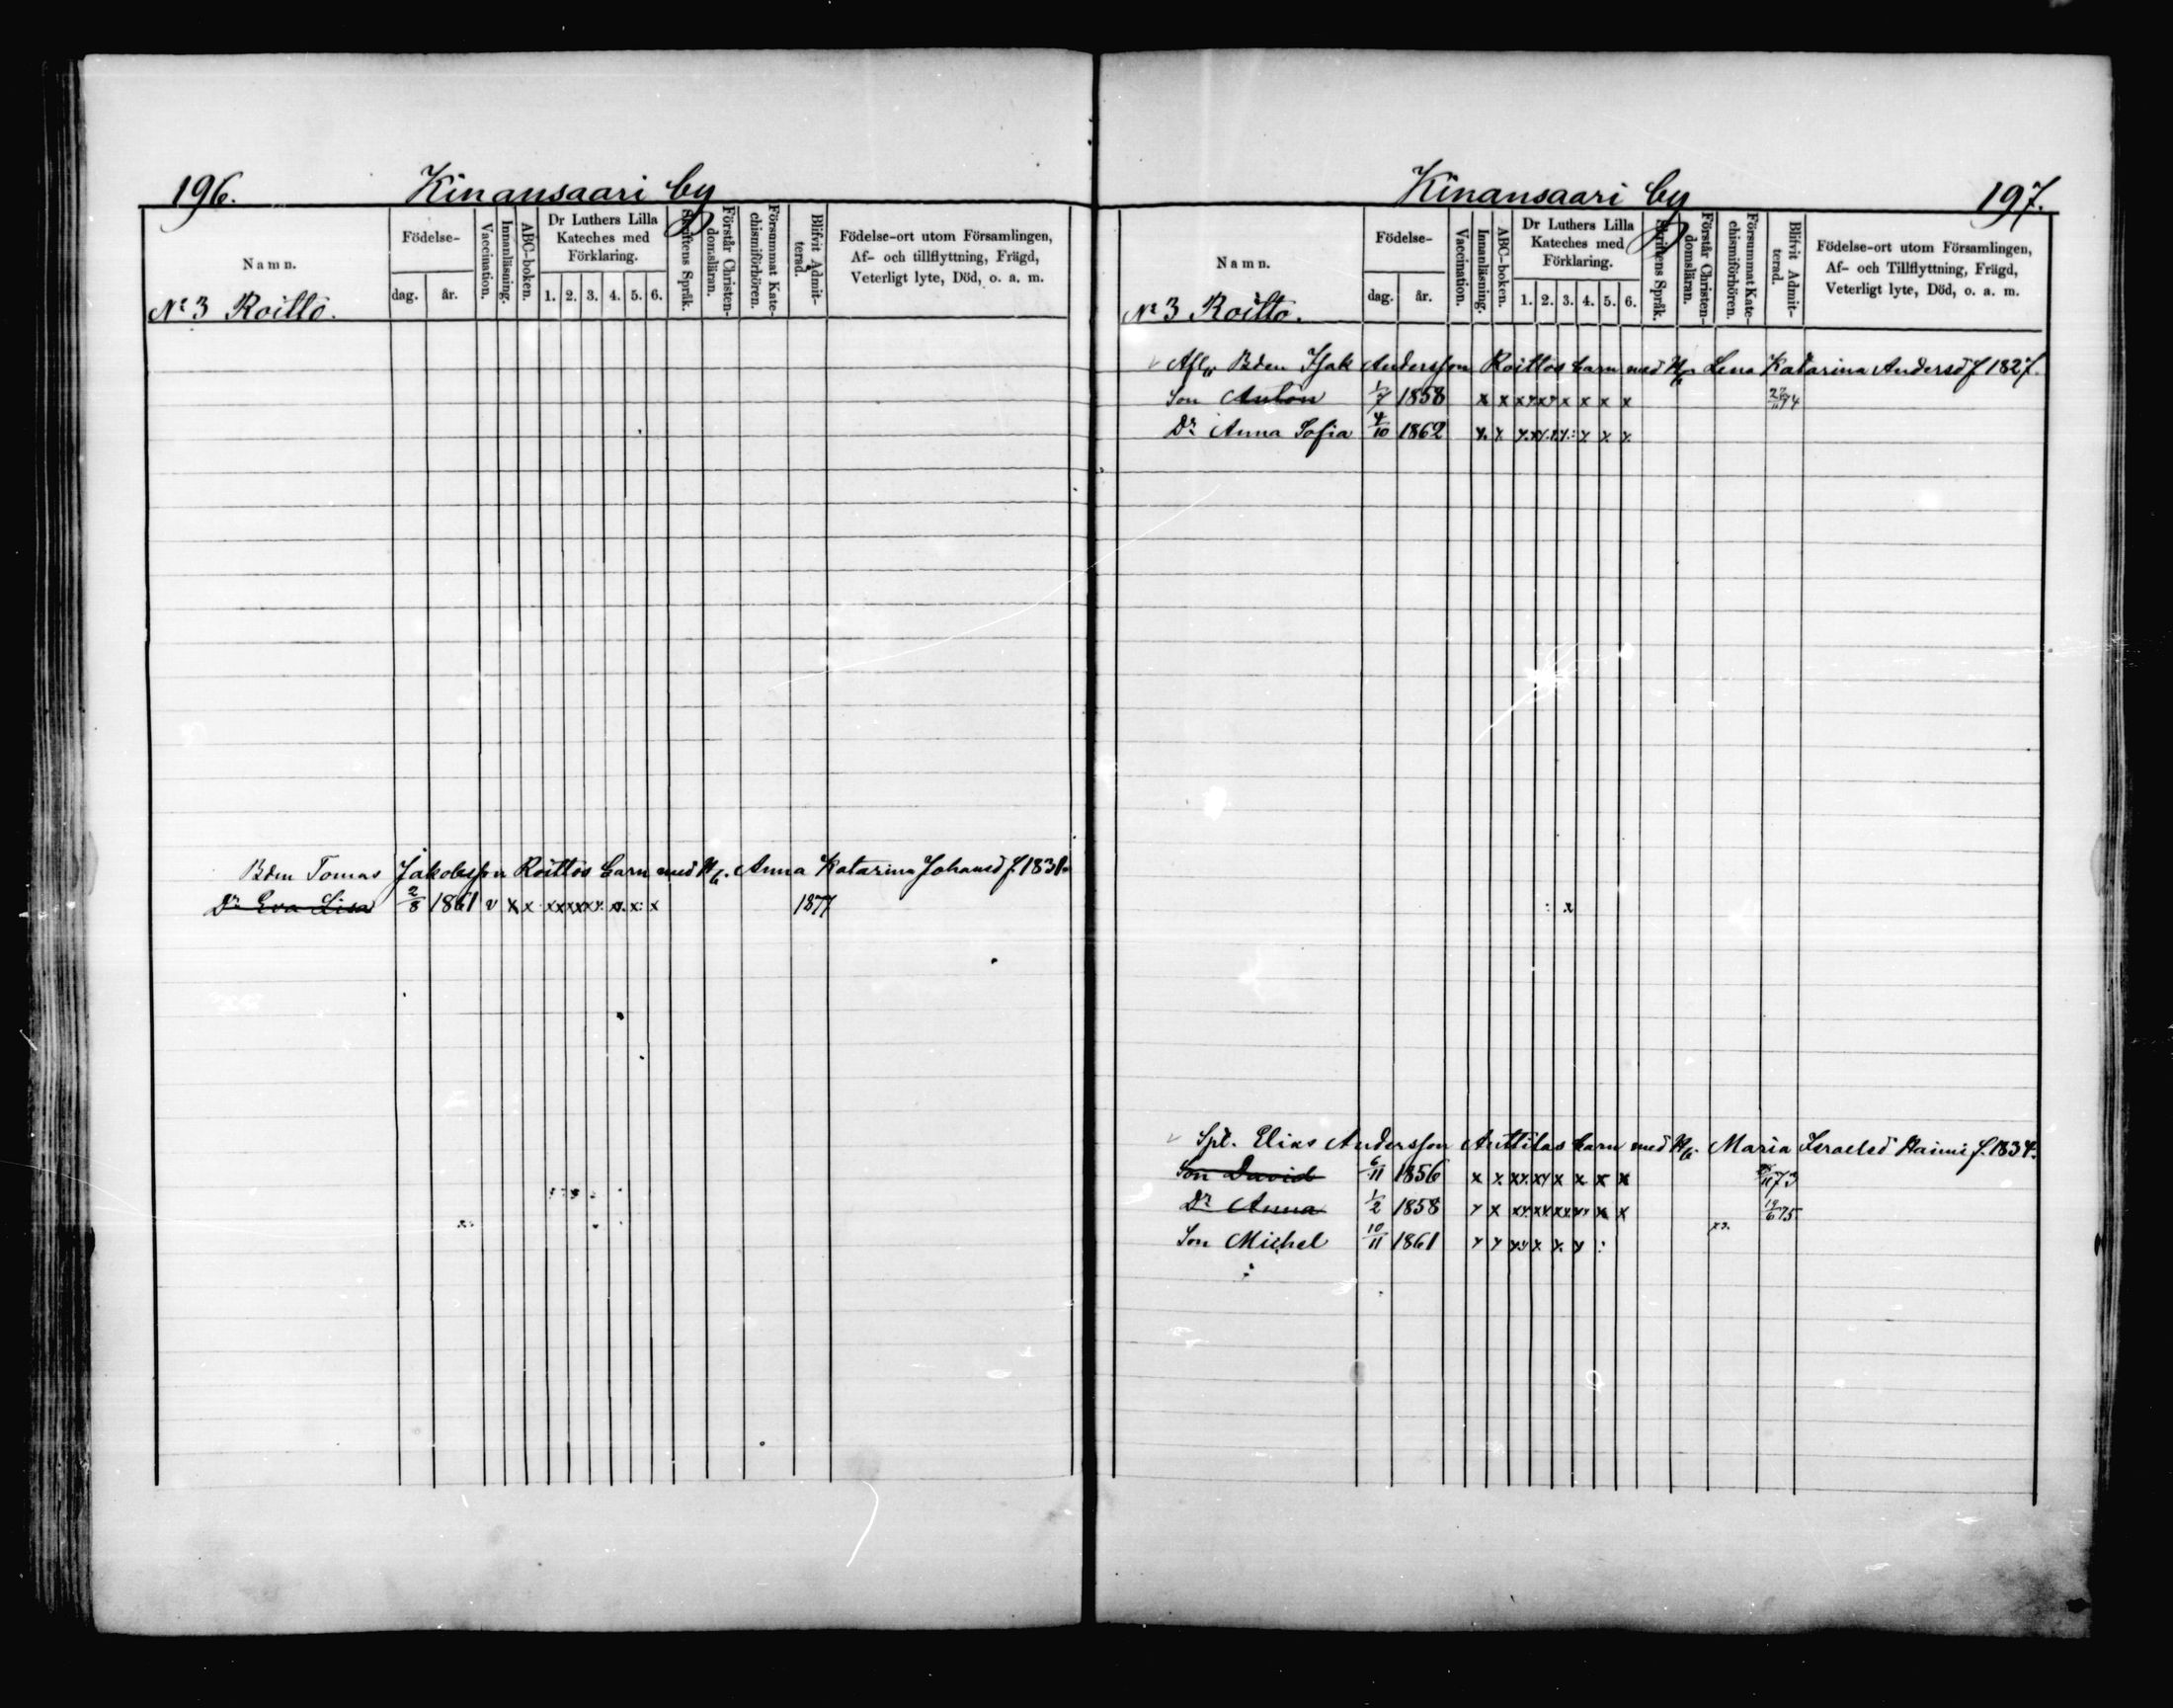 196. Kinansaari by
Namn.
Födelse-
dag.
år.
Vaccination.
Innanläsning.
ABC-boken.
Dr Luthers Lilla
Kateches med
Förklaring.
1. 2. 3. 4. 5. 6.
Skriftens Språk.
Förstår Christen-
domsläran.
Försummat Kate-
chismiförhören.
Blifvit Admit-
terad.
Födelse-ort utom Församlingen,
Af- och tillflyttning, Frägd,
Veterligt lyte, Död, o. a. m.
No 3 Roitto.
Bden Tomas Jakobsson Roittos barn med H. Anna Katarina Johansd f. 1831.
Dr Eva Lisa 2/8 1861 v x x xx xx xx x. x: x 1877
Kinansaari by 197.
Namn.
Födelse-
dag.
år.
Vaccination.
Innanläsning.
ABC-boken.
Dr Luthers Lilla
Kateches med
Förklaring.
1. 2. 3. 4. 5. 6.
Skriftens Språk.
Förstår Christen-
domsläran.
Försummat Kate-
chismiförhören.
Blifvit Admit-
terad.
Födelse-ort utom Församlingen,
Af- och Tillflyttning, Frägd,
Veterligt lyte, Död, o. a. m.
No 3 Roitto.
Afl. Bden Isak Andersson Roittos barn med H. Lena Katarina Andersd f 1827.
Son Anton 1/7 1858 x x xx xx x x x x
Dr Anna Sofia 4/10 1862 x. x x.x x.x x: x x x
Spl. Elias Andersson Anttilas barn med H. Maria Israelsd Haimi f. 1834.
Son David 6/11 1856 x x xx xx x x x x 73
Dr Anna 1/2 1858 x x xx xx xx xx x x 19/6 75
Son Michel 10/11 1861 x x xx x x x :